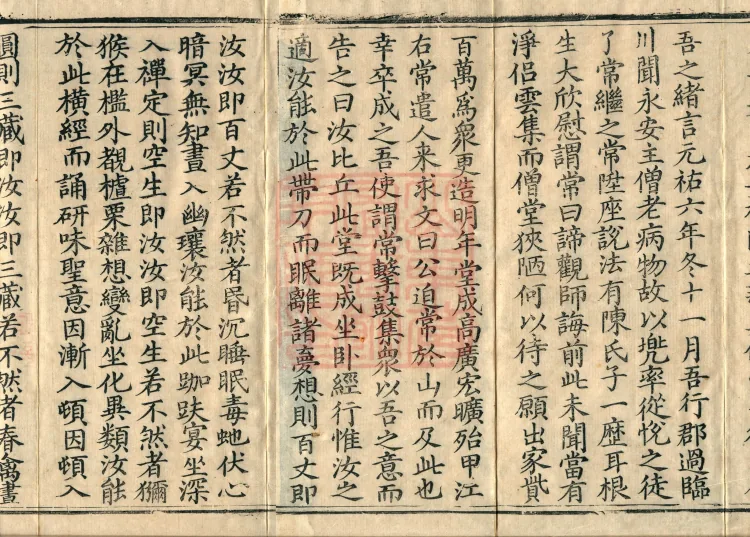 吾之緒言元祐六年冬十一月吾行郡過臨
川聞永安主僧老病物故以兠率從悅之徒
了常繼之常陞座說法有陳氏子一歷耳根
生大欣慰謂常曰諦觀師誨前此未聞當有
淨侣雲集而僧堂狹陋何以待之願出家貲
百萬爲衆更造明年堂成高廣宏曠殆甲江
右常遣人来求文曰公迫常於山而及此也
幸卒成之吾使謂常擊鼓集衆以吾之意而
告之曰汝比丘此堂既成坐卧經行惟汝之
適汝能於此帶刀而眠離諸夢想則百丈即
汝汝即百丈若不然者昏沉睡眠毒虵伏心
暗冥無知晝入幽壤汝能於此跏趺宴坐深
入禪定則空生即汝汝即空生若不然者獼
猴在檻外覩樝栗雜想變亂坐化異類汝能
於此橫經而誦研味聖意因漸入頓因頓入
圓則三藏即汝汝即三藏若不然者春禽晝